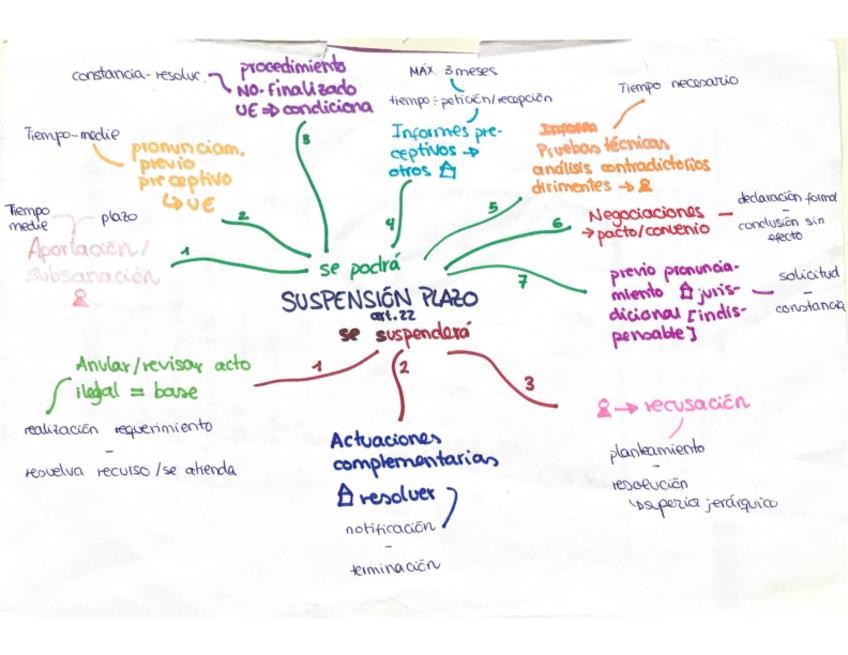 constancia-resoluc.
procedimiento
NO-finalizado
UE ⇒ condiciona
3
MÁX. 3 meses
tiempo: petición/recepción
Informes pre-
ceptivos →
otros
4
Tiempo necesario
Informe
Pruebas técnicas
análisis contradictorios
dirimentes →
5
Tiempo-medie
pronunciam.
previo
preceptivo
↳ UE
2
Tiempo
medie
plazo
Aportación/
subsanación
1
Negociaciones
→ pacto/convenio
6
declaración formal
-
conclusión sin
efecto
previo pronuncia-
miento juris-
diccional [indis-
pensable]
7
solicitud
-
constancia
se podrá
SUSPENSIÓN PLAZO
art. 22
se suspenderá
Anular/revisar acto
ilegal = base
1
realización requerimiento
-
resuelva recurso/se atienda
2
Actuaciones
complementarias
resolver
notificación
-
terminación
3
→ recusación
planteamiento
-
resolución
↳ superior jerárquico